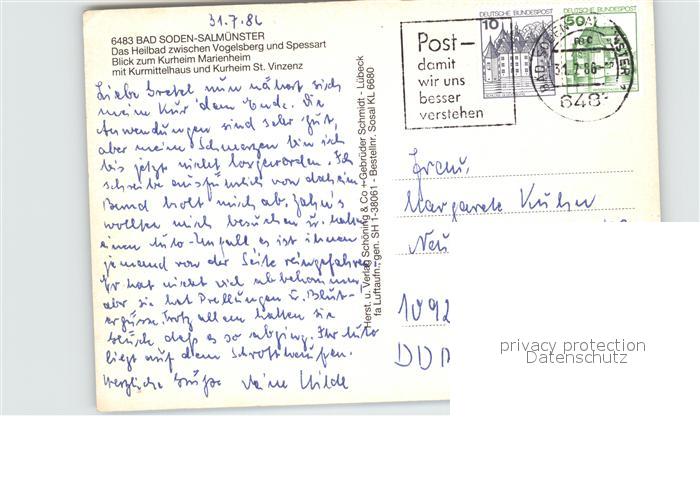 31.7.86
6483 BAD SODEN-SALMÜNSTER
Das Heilbad zwischen Vogelsberg und Spessart
Blick zum Kurheim Marienheim
mit Kurmittelhaus und Kurheim St. Vinzenz
Liebe Gretel nun nähert sich
meine Kur dem Ende. Die
Anwendungen sind sehr gut,
aber meine Schmerzen bin ich
bis jetzt nicht losgeworden. Ich
schreibe ausführlich von daheim
Bernd holt mich ab. Zahn's
wollten mich besuchen u. hatten
einen Auto-Unfall es ist ihnen
jemand von der Seite reingefahren
Er hat nicht viel abbekommen
aber sie hat Prellungen u. Blut-
ergüsse. Trotz allem hatten sie
Glück daß es so abging. Ihr Auto
liegt auf dem Schrotthaufen.
Herzliche Grüße Deine Hilde
Herst. u. Verlag Schöning & Co + Gebrüder Schmidt - Lübeck
fa Luftaufn. gen. SH 1-38061 - Bestellnr. Sosal KL 6680
Post-
damit
wir uns
besser
verstehen
10 DEUTSCHE BUNDESPOST
50 DEUTSCHE BUNDESPOST
BAD SODEN
31.7.86
648
Frau
Margarete Kuhn
Neu
1092
DDR
privacy protection
Datenschutz